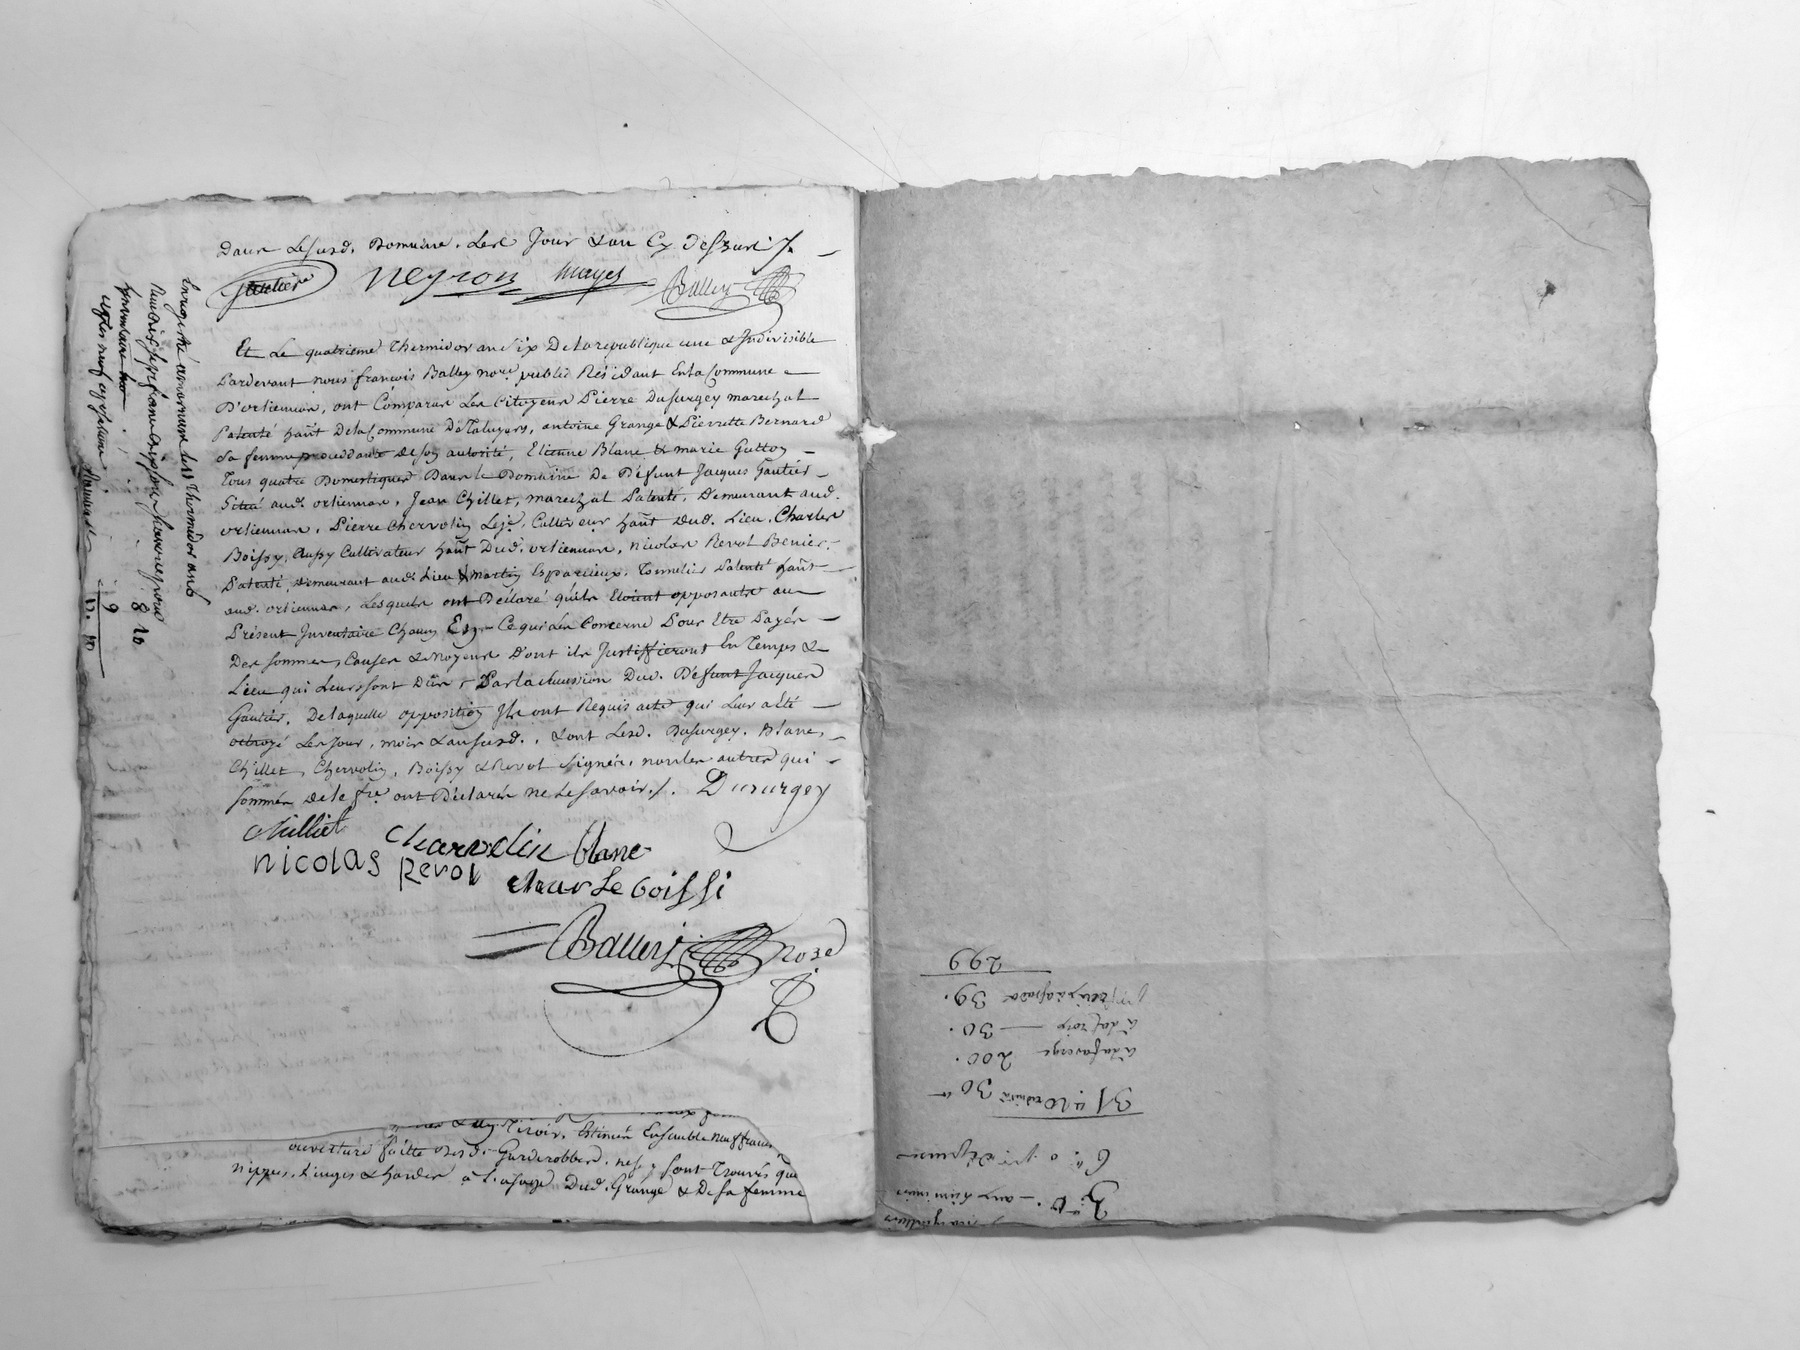 Dans Lesusd. Domaine. Les Jour & an Cy Dessus /.
Gautier Neyron mayet Balley
Et Le quatrieme Thermidor an Six De la republique une & Indivisible
Pardevant nous françois Balley nore public Résidant En la Commune
D'orliennas, ont Comparus Les Citoyens Pierre Dusurgey marechal
Patenté hañt De la Commune De Taluyers, antoine Grange & Pierrette Bernard
sa femme procedante De soy autorité, Etienne Blanc & marie Guttoy
Tous quatre Domestiques Dans le Domaine De Défunt Jacques Gautier
Situé aud. orliennas, Jean Chillet, marechal Patenté, Demeurant aud.
orliennas, Pierre Chervolin Leje, Cultivateur hañt Dud. Lieu, Charles
Boissy, Aussy Cultivateur hañt Dud. orliennas, nicolas Revol Benier
Patenté, Demeurant aud. Lieu & martin Esparcieux, Tonnelier Patenté hañt
aud. orliennas, Lesquels ont Déclaré qu'ils Etoient opposants au
Présent Inventaire Chacun En Ce qui Les Concerne Pour Etre Payés
Des sommes, Causes & moyens D'ont ils Justiffieront En Temps &
Lieu qui Leurs sont Dûs Par la sucession Dud. Défunt Jacques
Gautier, De laquelle opposition Ils ont Requis acte qui Leur a Eté
octroyé Les Jour, mois & an susd., & ont Lesd. Dusurgey, Blanc,
Chillet, Chervolin, Boissy & Revol Signés, non les autres qui
sommés De le fre ont Déclarés ne Le savoir /. Dusurgey
Chilliet
Charvolin blanc
nicolas Revol
charle boissi
Balley nore
Enregistré a mornant le 11 Thermidor an 6
9
8 10
& un Tiroir, Estimés Ensemble neuf francs
ouverture faitte Desd. Garderobbes, ne s'y sont Trouvés que
nippes, Linges & hardes à L'usage Dud. Grange & De sa femme
299
39.
30.
200.
6 # 0